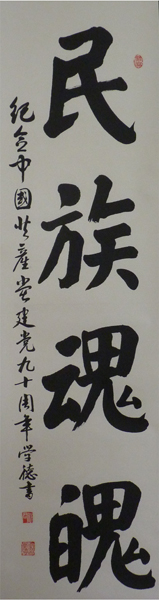 民族魂魄
纪念中國共產党建党九十周年学德书